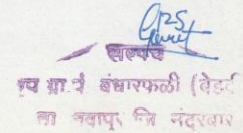 सरपंच
ग्रुप ग्रा.पं बंधारफळी (बेडकी
ता नवापूर जि नंदुरबार